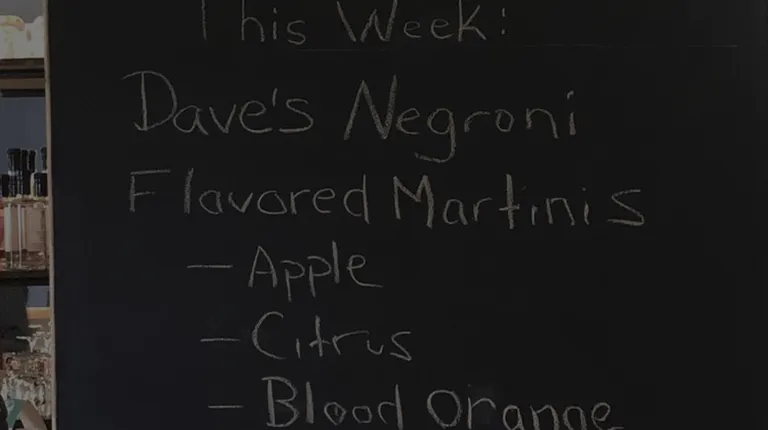 This Week:
Dave's Negroni
Flavored Martinis
- Apple
- Citrus
- Blood Orange